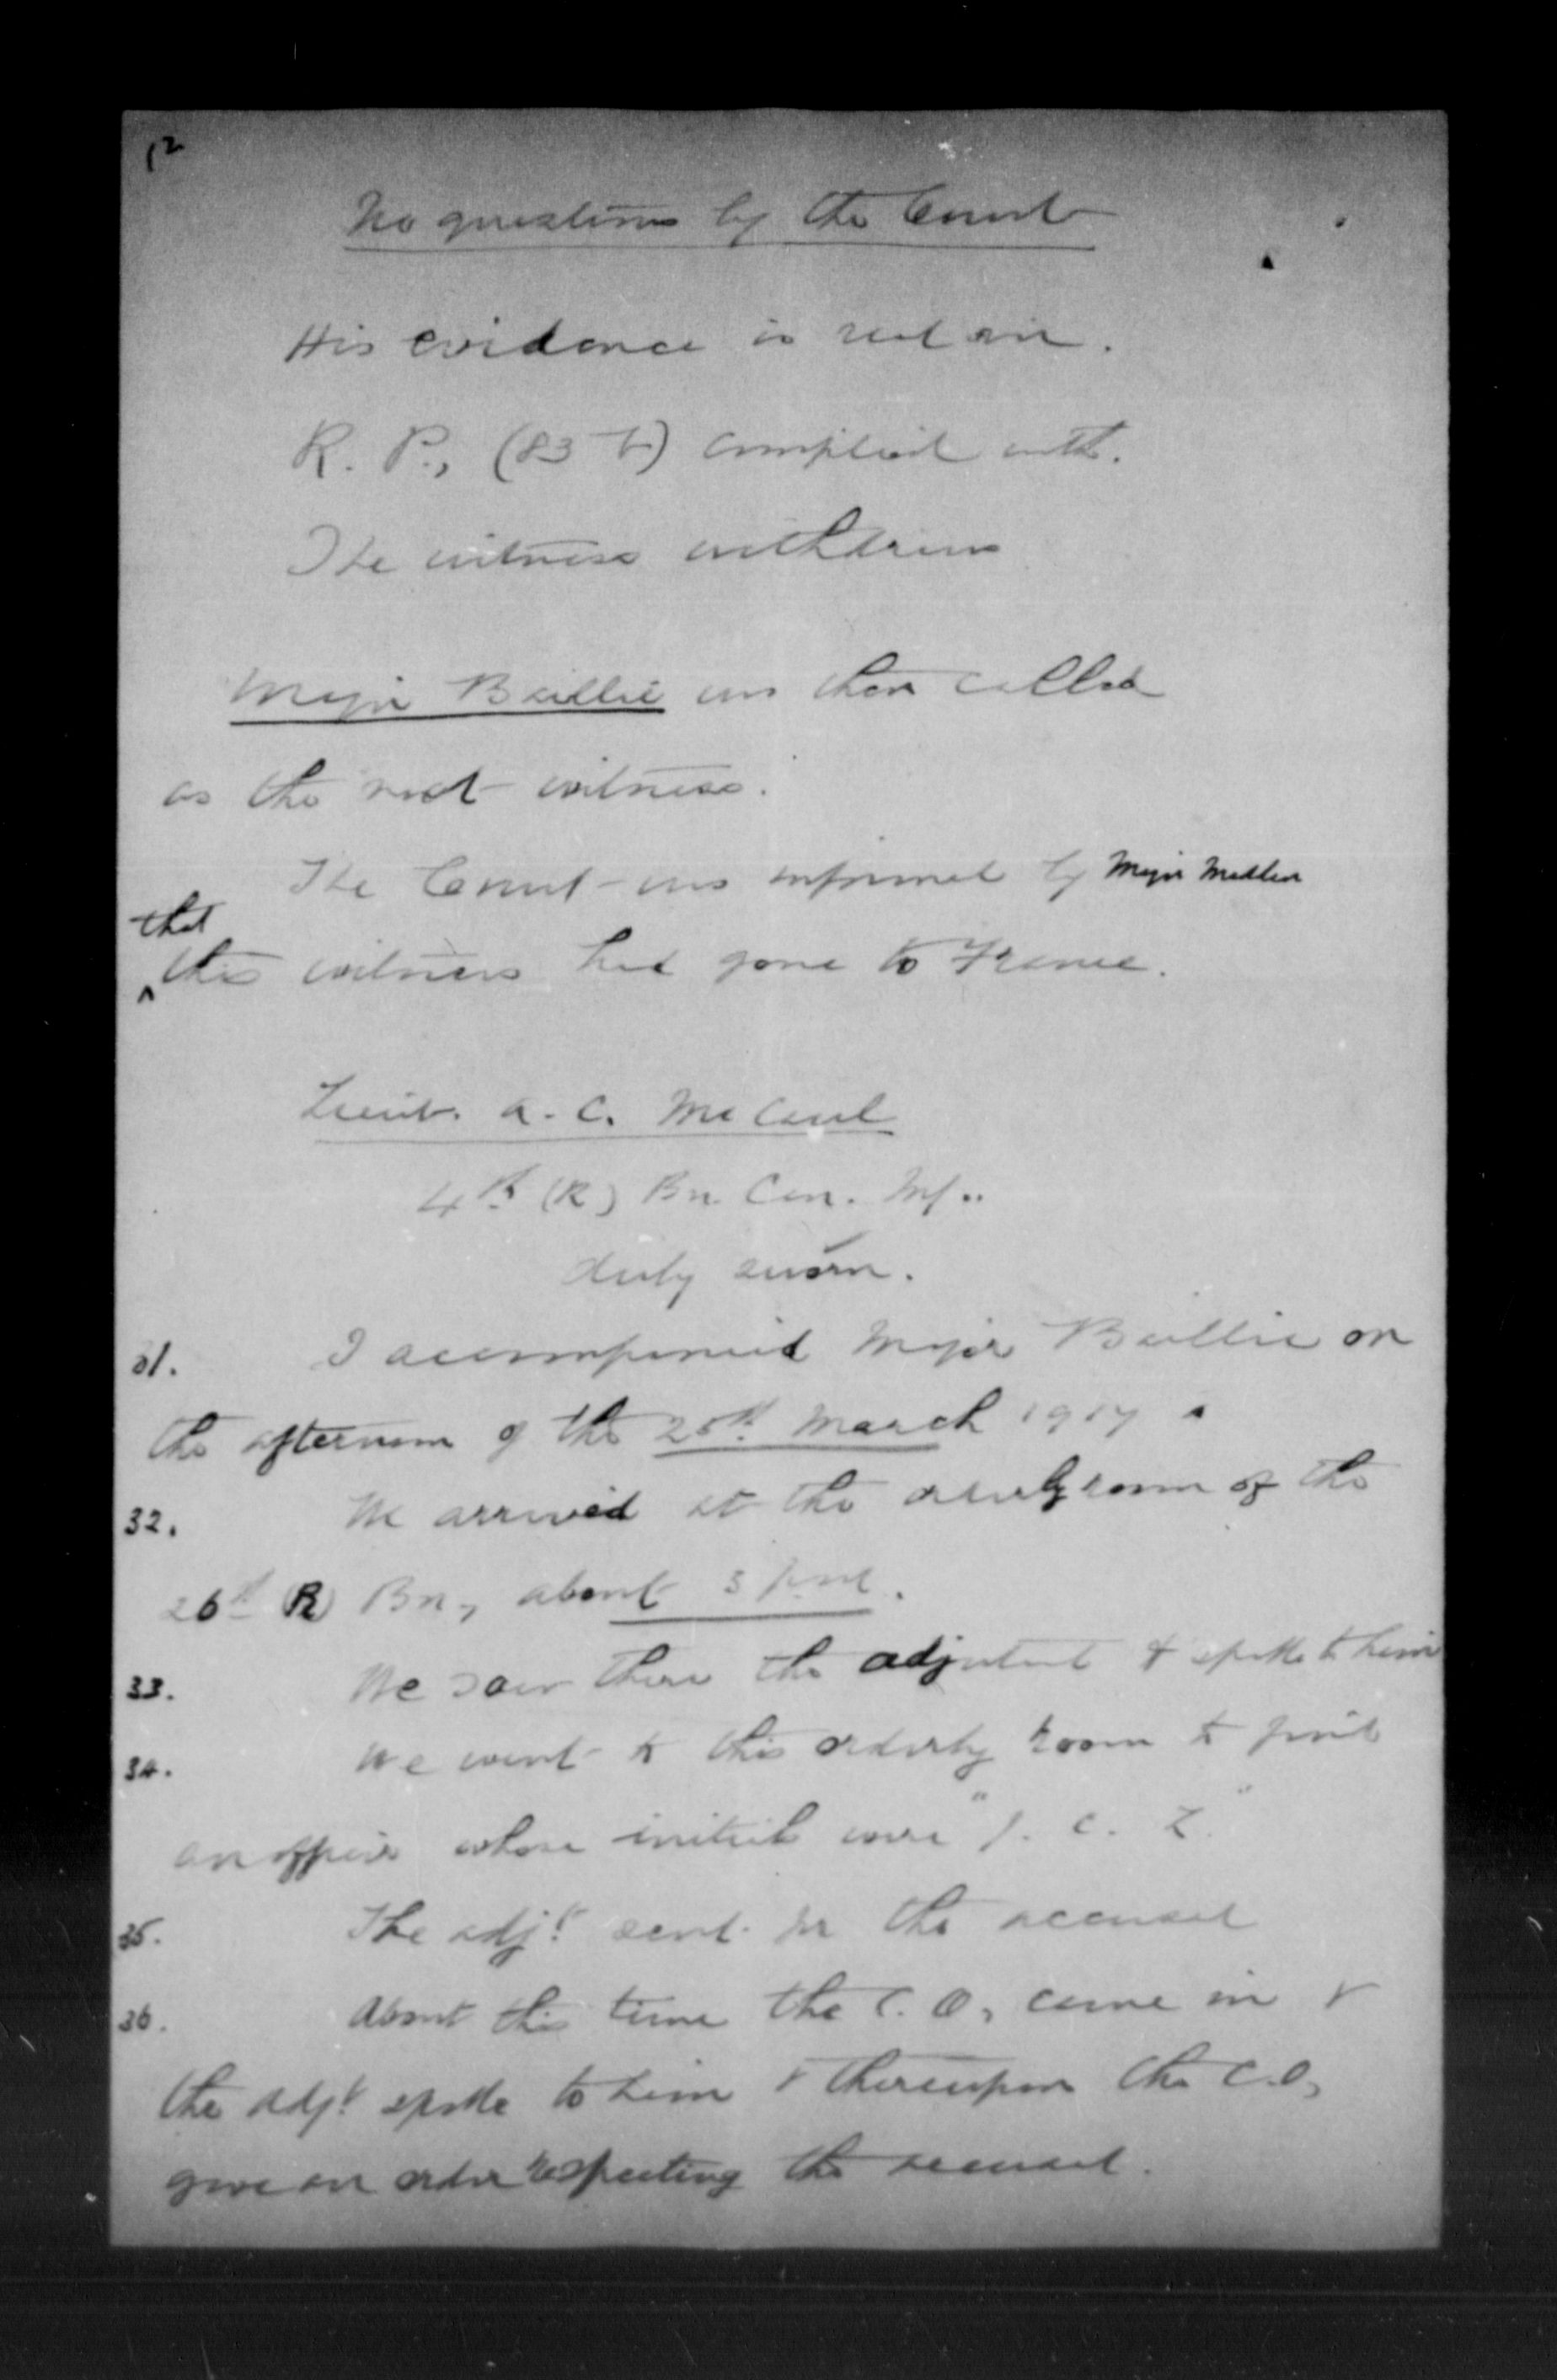 12
No questions by the Court
His evidence is read over.
R. P., (83 b) complied with.
The witness withdraws
Major Baillie was then called
as the next witness.
The Court was informed by Major
that
this witness had gone to France.
Lieut. A. C. McCaul
4th (R) Bn Can. Inf..
duly sworn.
31. I accompanied Major Baillie on
the afternoon of the March 1917.
32. We arrived at the orderly room of the
26th (R) Bn, about 3 p.m.
33. We saw there the adjutant & spoke to him
34. We went to this orderly room to find
an officer whose initials were "J. C. L."
35. The adjt sent for the accused
36. About this time the C. O, came in &
the adjt spoke to him & thereupon the C.O,
gave an order respecting the accused.